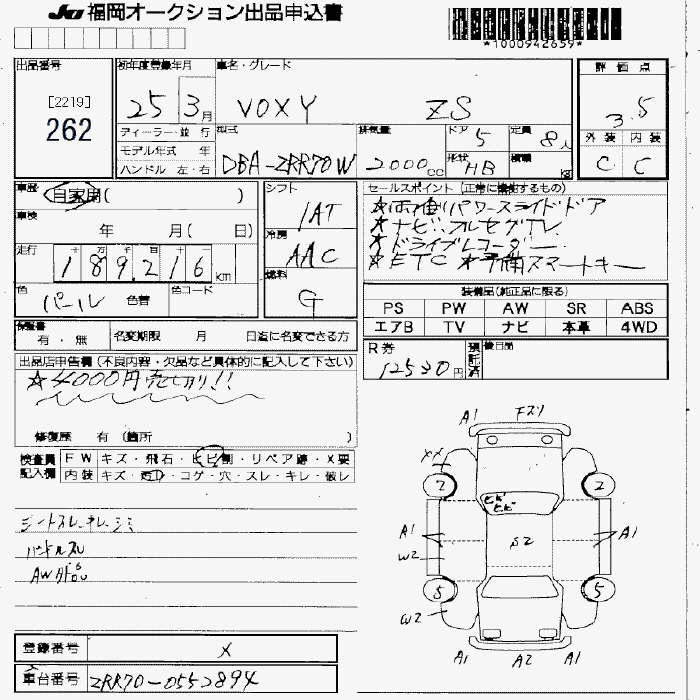 JU 福岡オークション出品申込書
*1000942659*
出品番号
[2219]
262
初年度登録年月
25 3月
車名・グレード
VOXY ZS
評価点
3.5
外装 内装
C C
ディーラー・並行
モデル年式 年
ハンドル 左・右
型式
DBA-ZRR70W
排気量
2000cc
ドア
5
形状
HB
定員
8人
積載
kg
車歴
自家用( )
車検
年 月( 日)
走行
189216 km
色
パール
色替
色コード
シフト
IAT
冷房
AAC
燃料
G
セールスポイント(正常に機能するもの)
☆両側パワースライドドア
☆ナビ フルセグTV
☆ドライブレコーダー
☆ETC ☆予備スマートキー
装備品(純正品に限る)
PS PW AW SR ABS
エアB TV ナビ 本革 4WD
保証書
有・無
名変期限 月 日迄に名変できる方
R券
12530円
預託済
後日品
出品店申告欄(不良内容・欠品など具体的に記入して下さい)
☆4000円売切り!!
修復歴 有(箇所 )
検査員記入欄
FW キズ・飛石・ヒビ割・リペア跡・X要
内装 キズ・汚れ・コゲ・穴・スレ・キレ・破レ
シートスレ・キレ・シミ
ハンドルスレ
AW
登録番号
X
車台番号
ZRR70-0552894
A1 Fスリ
XX
2 2
ヒビ
ヒビ
A1 S2 A1
W2
5 5
W2
A1 A2 A1